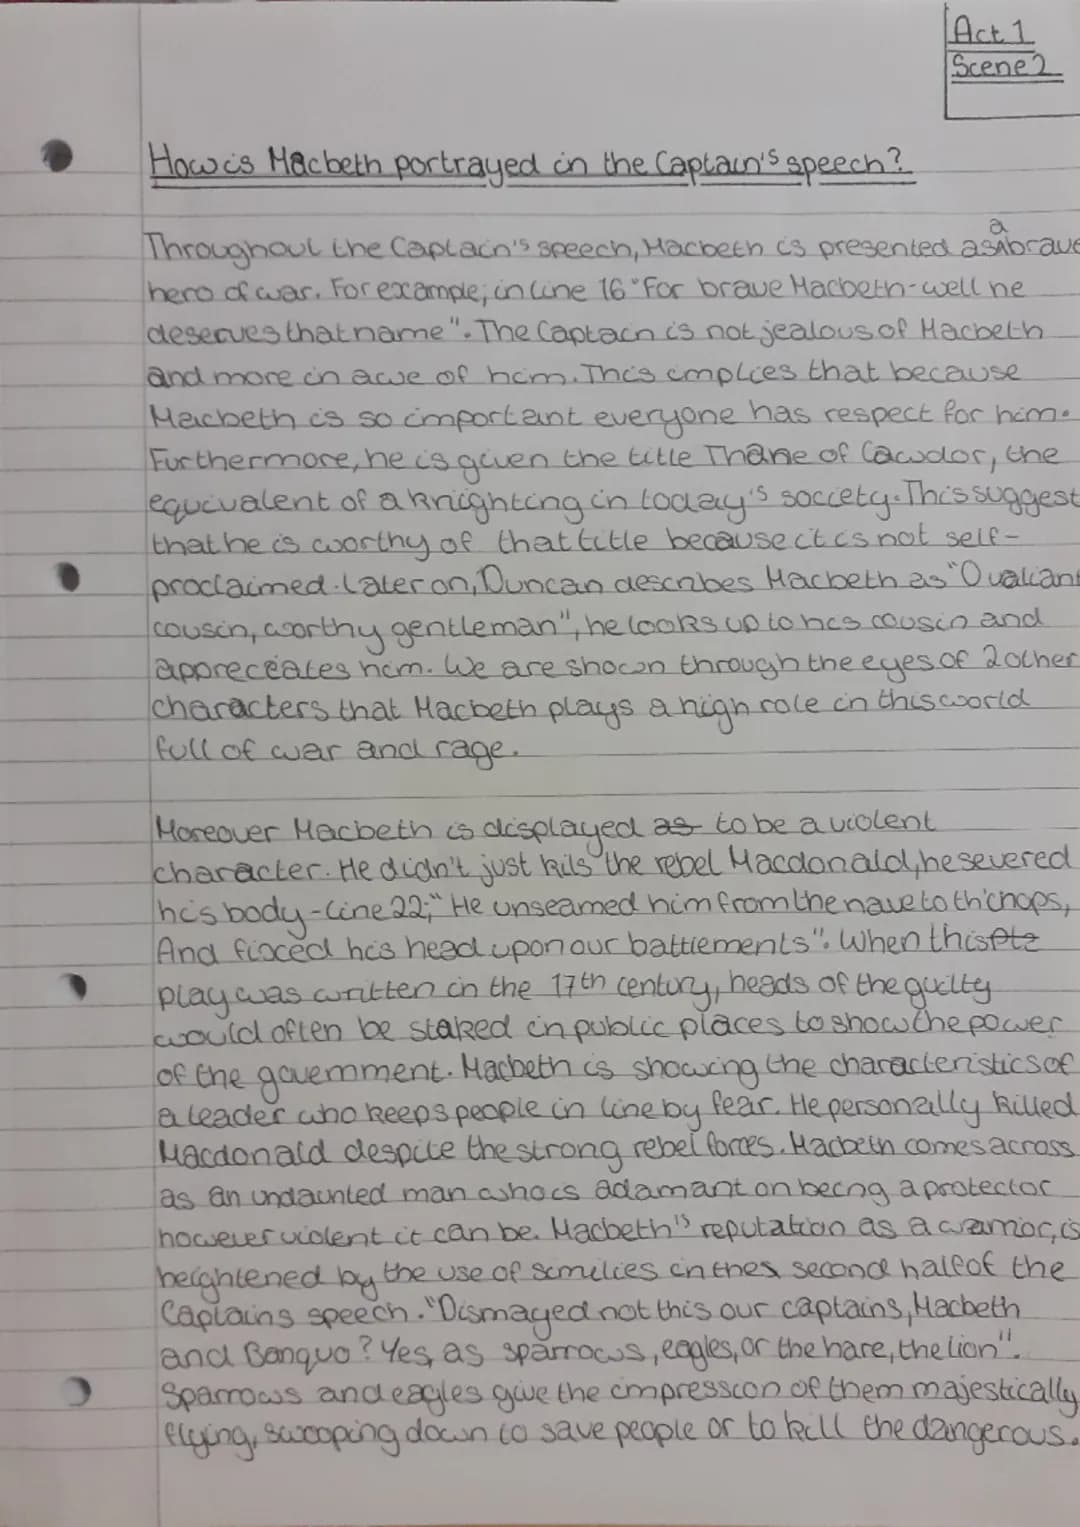 Act 1
Scene 2
How is Macbeth portrayed in the Captain's speech?
Throughout the Captain's speech, Macbeth is presented as a brave
hero of war. For example, in line 16 "For brave Macbeth-well he
deserves that name". The Captain is not jealous of Macbeth
and more in awe of him. This implies that because
Macbeth is so important everyone has respect for him.
Furthermore, he is given the title Thane of Cawdor, the
equivalent of a knighting in today's society. This suggest
that he is worthy of that title because it is not self-
proclaimed. Later on, Duncan describes Macbeth as "O valiant
cousin, worthy gentleman", he looks up to his cousin and
appreceates him. We are shown through the eyes of 2 other
characters that Macbeth plays a high role in this world
full of war and rage.
Moreover Macbeth is displayed as to be a violent
character. He didn't just kils the rebel Macdonald, he severed
his body - line 22; "He unseamed him from the nave to th'chops,
And fixed his head upon our battlements". When this
play was written in the 17th century, heads of the guilty
would often be staked in public places to show the power
of the government. Macbeth is showing the characteristics of
a leader who keeps people in line by fear. He personally killed
Macdonald despite the strong rebel forces. Macbeth comes across
as an undaunted man who is adamant on being a protector
however violent it can be. Macbeth's reputation as a warrior, is
heightened by the use of similies in the second half of the
Captains speech. "Dismayed not this our captains, Macbeth
and Banquo? Yes, as sparrows, eagles, or the hare, the lion".
Sparrows and eagles give the impression of them majestically
flying, swooping down to save people or to kill the dangerous.